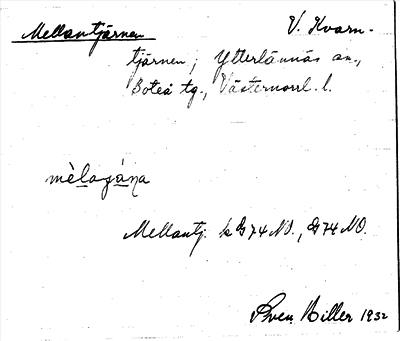 Mellantjärnen V. Kvarn-
tjärnen, Ytterlännäs sn.,
Boteå tg., Västernorrl. l.
Mellantj. k G74 NO., G74 NO.
Sven Hiller 1932